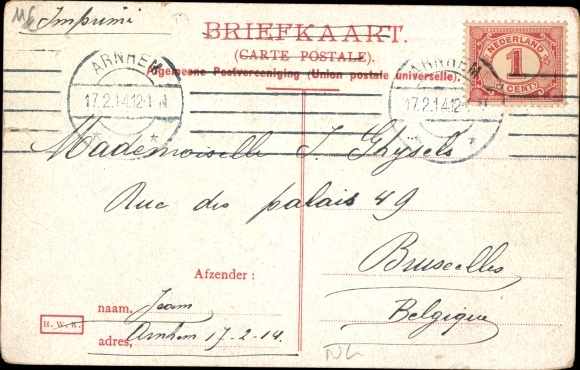 Imprimé
BRIEFKAART.
(CARTE POSTALE).
Algemeene Postvereeniging (Union postale universelle).
NEDERLAND
1
CENT
ARNHEM
17.2.14.12-1 N
ARNHEM
17.2.14.12-1 N
Mademoiselle J. Ghysels
Rue des palais 49
Bruxelles
Belgique
Afzender:
naam, Jeam
adres, Arnhem 17-2-14.
H. W. R.